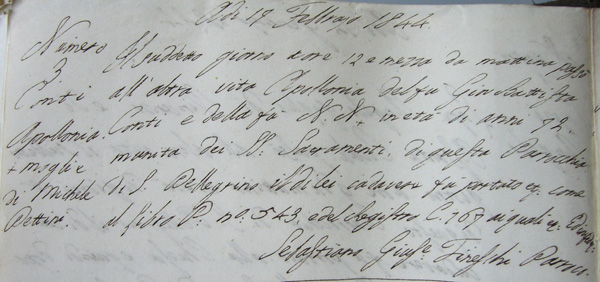 Adi 17 Febbrajo 1844
Numero 3
Conti
Apollonia
+ moglie
di Michele
Pettini
Il suddetto giorno a ore 12 e mezza da mattina passò
all'altra vita Apollonia del fu Gio: Battista
Conti e della fu N. N. in età di anni 72.
munita dei SS. Sacramenti, di questa Parrochia
di S. Pellegrino il di lei cadavere fu portato come
al libro P. no. 543, e del Registro C. 167 ai quali
Sebastiano Gius. Fineschi Parro.